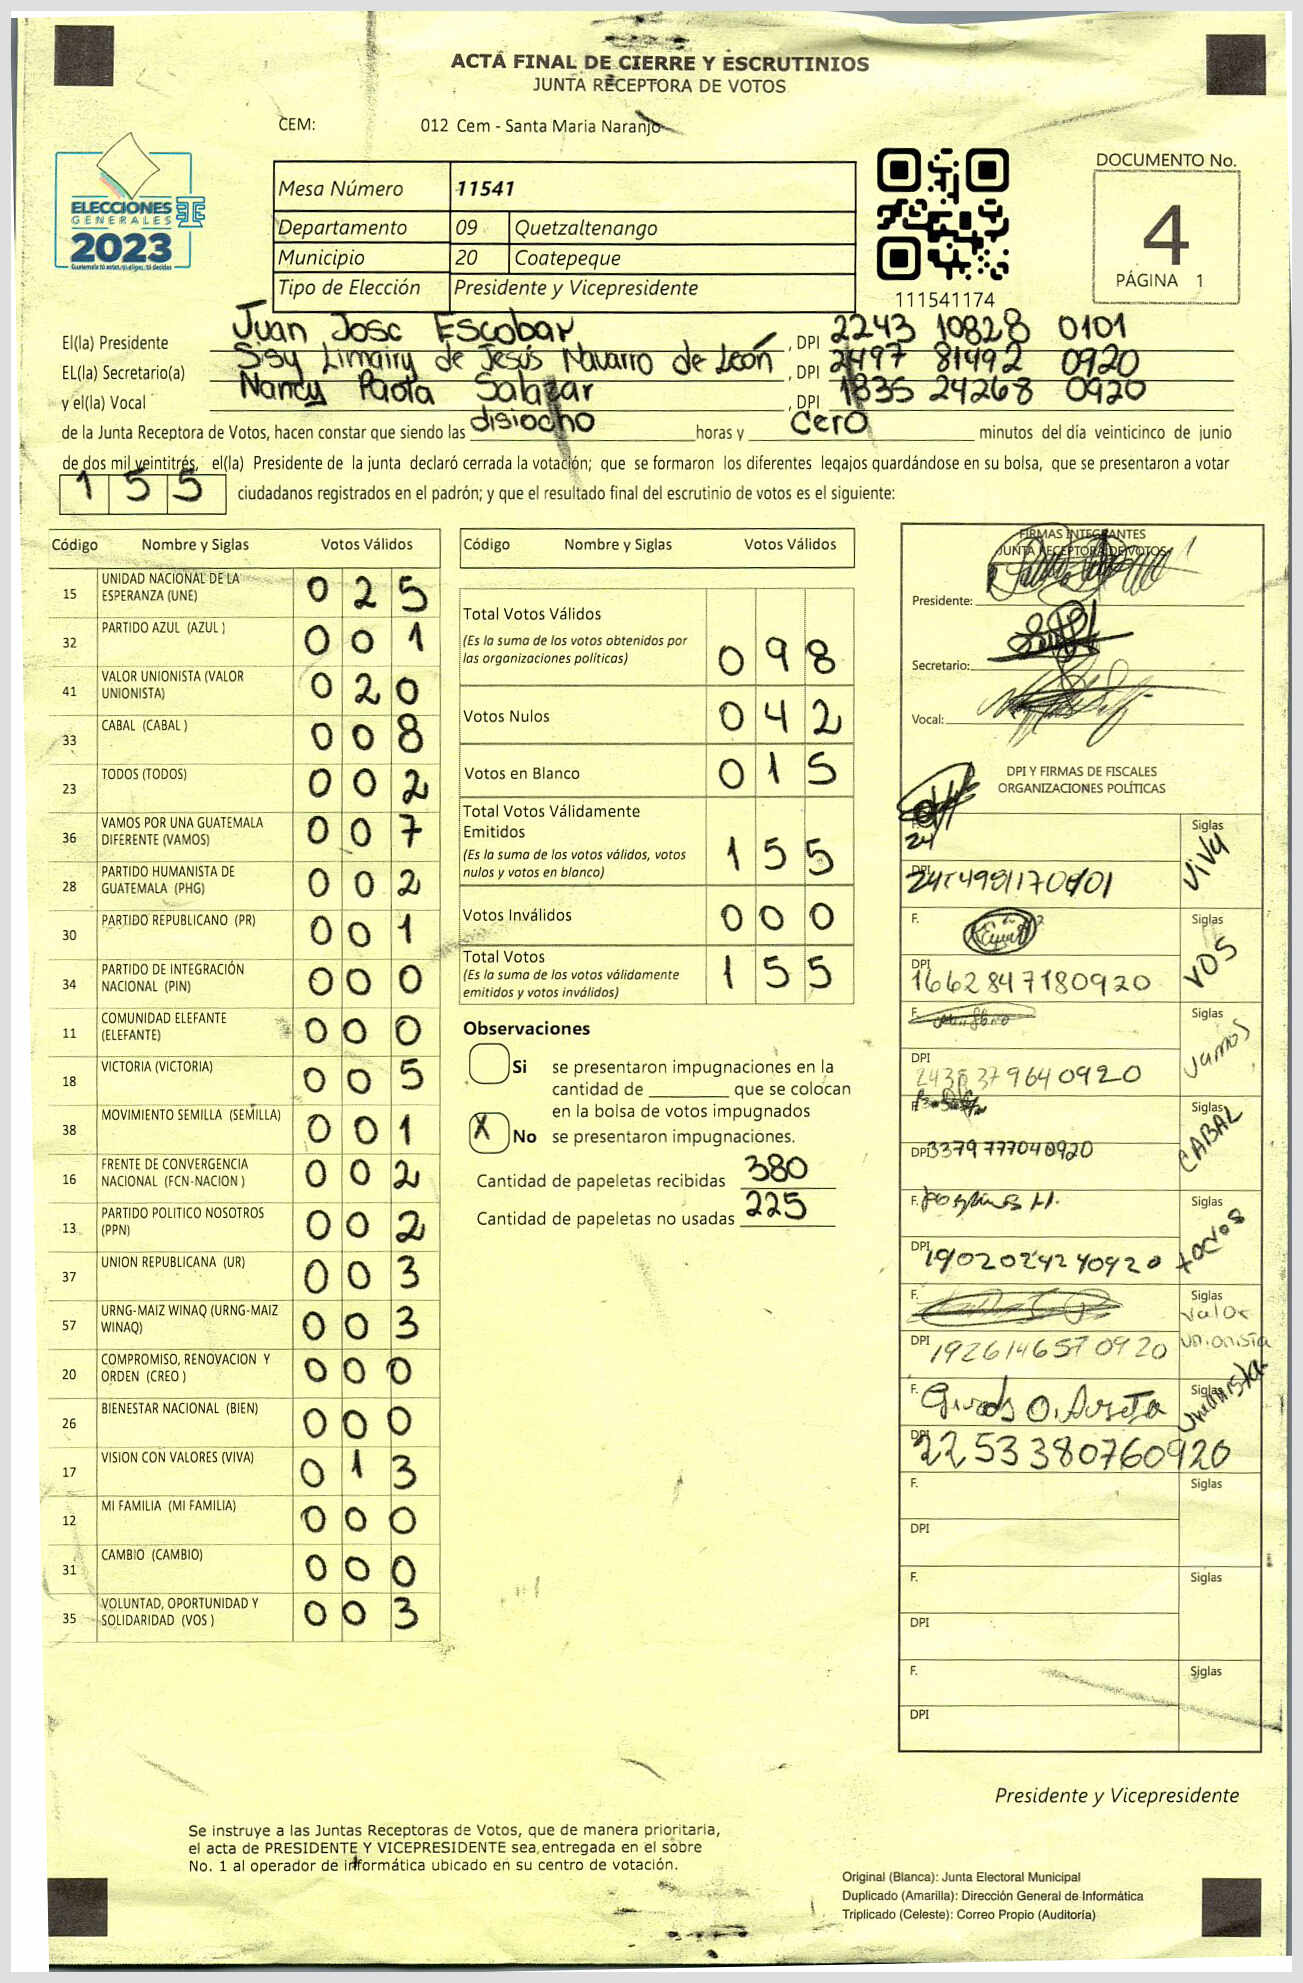 ACTA FINAL DE CIERRE Y ESCRUTINIOS
JUNTA RECEPTORA DE VOTOS
CEM: 012 Cem - Santa Maria Naranjo
ELECCIONES
GENERALES
2023
Mesa Número 11541
Departamento 09 Quetzaltenango
Municipio 20 Coatepeque
Tipo de Elección Presidente y Vicepresidente
111541174
DOCUMENTO No.
4
PÁGINA 1
El(la) Presidente Juan Jose Escobar, DPI 2243 10828 0101
EL(la) Secretario(a) Limairy de Jesús Navarro de León, DPI 2497 81492 0920
y el(la) Vocal Nancy Paola Salazar, DPI 1835 24268 0920
de la Junta Receptora de Votos, hacen constar que siendo las disiocho horas y cero minutos del día veinticinco de junio
de dos mil veintitrés, el(la) Presidente de la junta declaró cerrada la votación; que se formaron los diferentes legajos guardándose en su bolsa, que se presentaron a votar
155 ciudadanos registrados en el padrón; y que el resultado final del escrutinio de votos es el siguiente:
Código Nombre y Siglas Votos Válidos
15 UNIDAD NACIONAL DE LA ESPERANZA (UNE) 025
32 PARTIDO AZUL (AZUL ) 001
41 VALOR UNIONISTA (VALOR UNIONISTA) 020
33 CABAL (CABAL ) 008
23 TODOS (TODOS) 002
36 VAMOS POR UNA GUATEMALA DIFERENTE (VAMOS) 007
28 PARTIDO HUMANISTA DE GUATEMALA (PHG) 002
30 PARTIDO REPUBLICANO (PR) 001
34 PARTIDO DE INTEGRACIÓN NACIONAL (PIN) 000
11 COMUNIDAD ELEFANTE (ELEFANTE) 000
18 VICTORIA (VICTORIA) 005
38 MOVIMIENTO SEMILLA (SEMILLA) 001
16 FRENTE DE CONVERGENCIA NACIONAL (FCN-NACION ) 002
13 PARTIDO POLITICO NOSOTROS (PPN) 002
37 UNION REPUBLICANA (UR) 003
57 URNG-MAIZ WINAQ (URNG-MAIZ WINAQ) 003
20 COMPROMISO, RENOVACION Y ORDEN (CREO ) 000
26 BIENESTAR NACIONAL (BIEN) 000
17 VISION CON VALORES (VIVA) 013
12 MI FAMILIA (MI FAMILIA) 000
31 CAMBIO (CAMBIO) 000
35 VOLUNTAD, OPORTUNIDAD Y SOLIDARIDAD (VOS ) 003
Código Nombre y Siglas Votos Válidos
Total Votos Válidos
(Es la suma de los votos obtenidos por
las organizaciones políticas) 098
Votos Nulos 042
Votos en Blanco 015
Total Votos Válidamente
Emitidos
(Es la suma de los votos válidos, votos
nulos y votos en blanco) 155
Votos Inválidos 000
Total Votos
(Es la suma de los votos válidamente
emitidos y votos inválidos) 155
Observaciones
Si se presentaron impugnaciones en la
cantidad de ________ que se colocan
en la bolsa de votos impugnados
X No se presentaron impugnaciones.
Cantidad de papeletas recibidas 380
Cantidad de papeletas no usadas 225
FIRMAS INTEGRANTES
JUNTA RECEPTORA DE VOTOS
Presidente:
Secretario:
Vocal:
DPI Y FIRMAS DE FISCALES
ORGANIZACIONES POLÍTICAS
F. Siglas VIVA
DPI
F. Siglas VOS
DPI 1662847180920
F. Siglas Vamos
DPI 2438379640920
F. Siglas CABAL
DPI 3379777040920
F. Siglas todos
DPI 1902024240920
F. Siglas valor unionista
DPI 1926146570920
F. Siglas unionista
DPI 2253380760920
F. Siglas
DPI
F. Siglas
DPI
F. Siglas
DPI
Presidente y Vicepresidente
Se instruye a las Juntas Receptoras de Votos, que de manera prioritaria,
el acta de PRESIDENTE Y VICEPRESIDENTE sea entregada en el sobre
No. 1 al operador de informática ubicado en su centro de votación.
Original (Blanca): Junta Electoral Municipal
Duplicado (Amarilla): Dirección General de Informática
Triplicado (Celeste): Correo Propio (Auditoría)